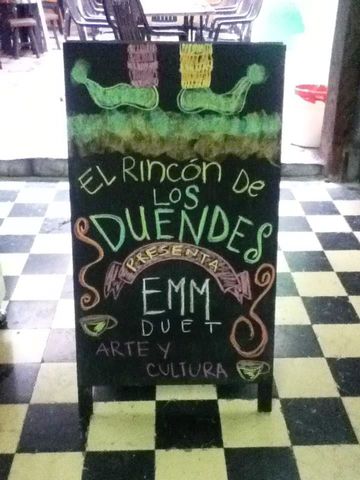 EL RINCÓN DE
LOS
DUENDES
PRESENTA
EMM
DUET
ARTE Y
CULTURA